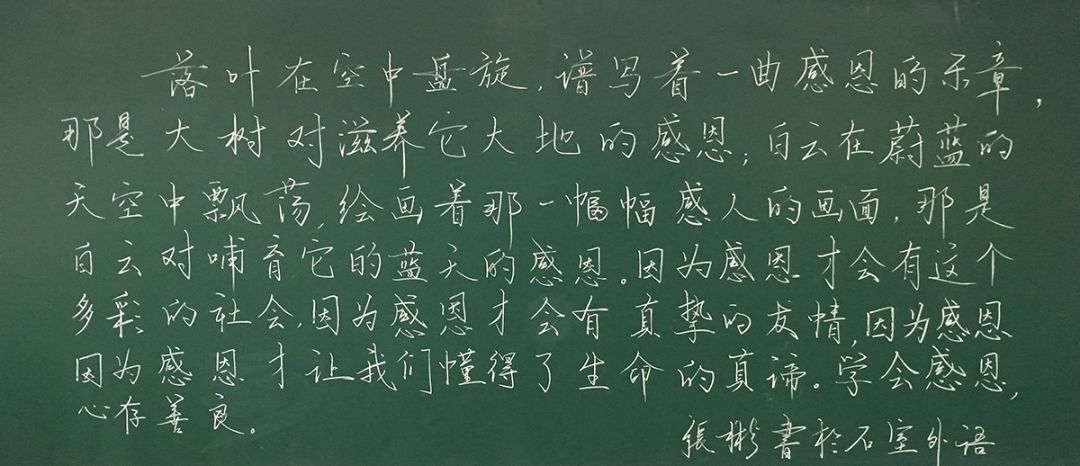 落叶在空中盘旋,谱写着一曲感恩的乐章,
那是大树对滋养它大地的感恩;白云在蔚蓝的
天空中飘荡,绘画着那一幅幅感人的画面,那是
白云对哺育它的蓝天的感恩。因为感恩才会有这个
多彩的社会,因为感恩才会有真挚的友情,因为感恩
因为感恩才让我们懂得了生命的真谛。学会感恩,
心存善良。
張彬書於石室外语